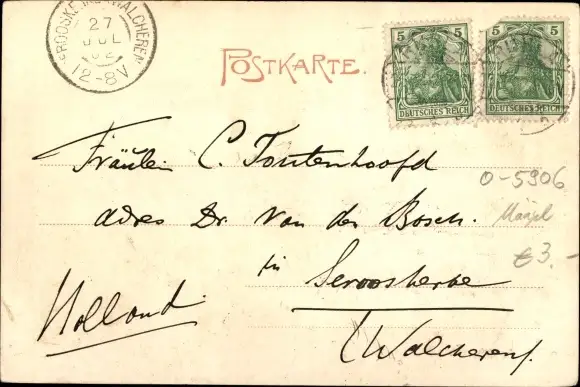 27
JUL
02
12-8V
POSTKARTE.
5 5
DEUTSCHES REICH
5 5
DEUTSCHES REICH
Fräulein C. Toutenhoofd
adres Dr. van den Bosch.
in Serooskerke
Holland
(Walcheren)
0-5906
€3.-